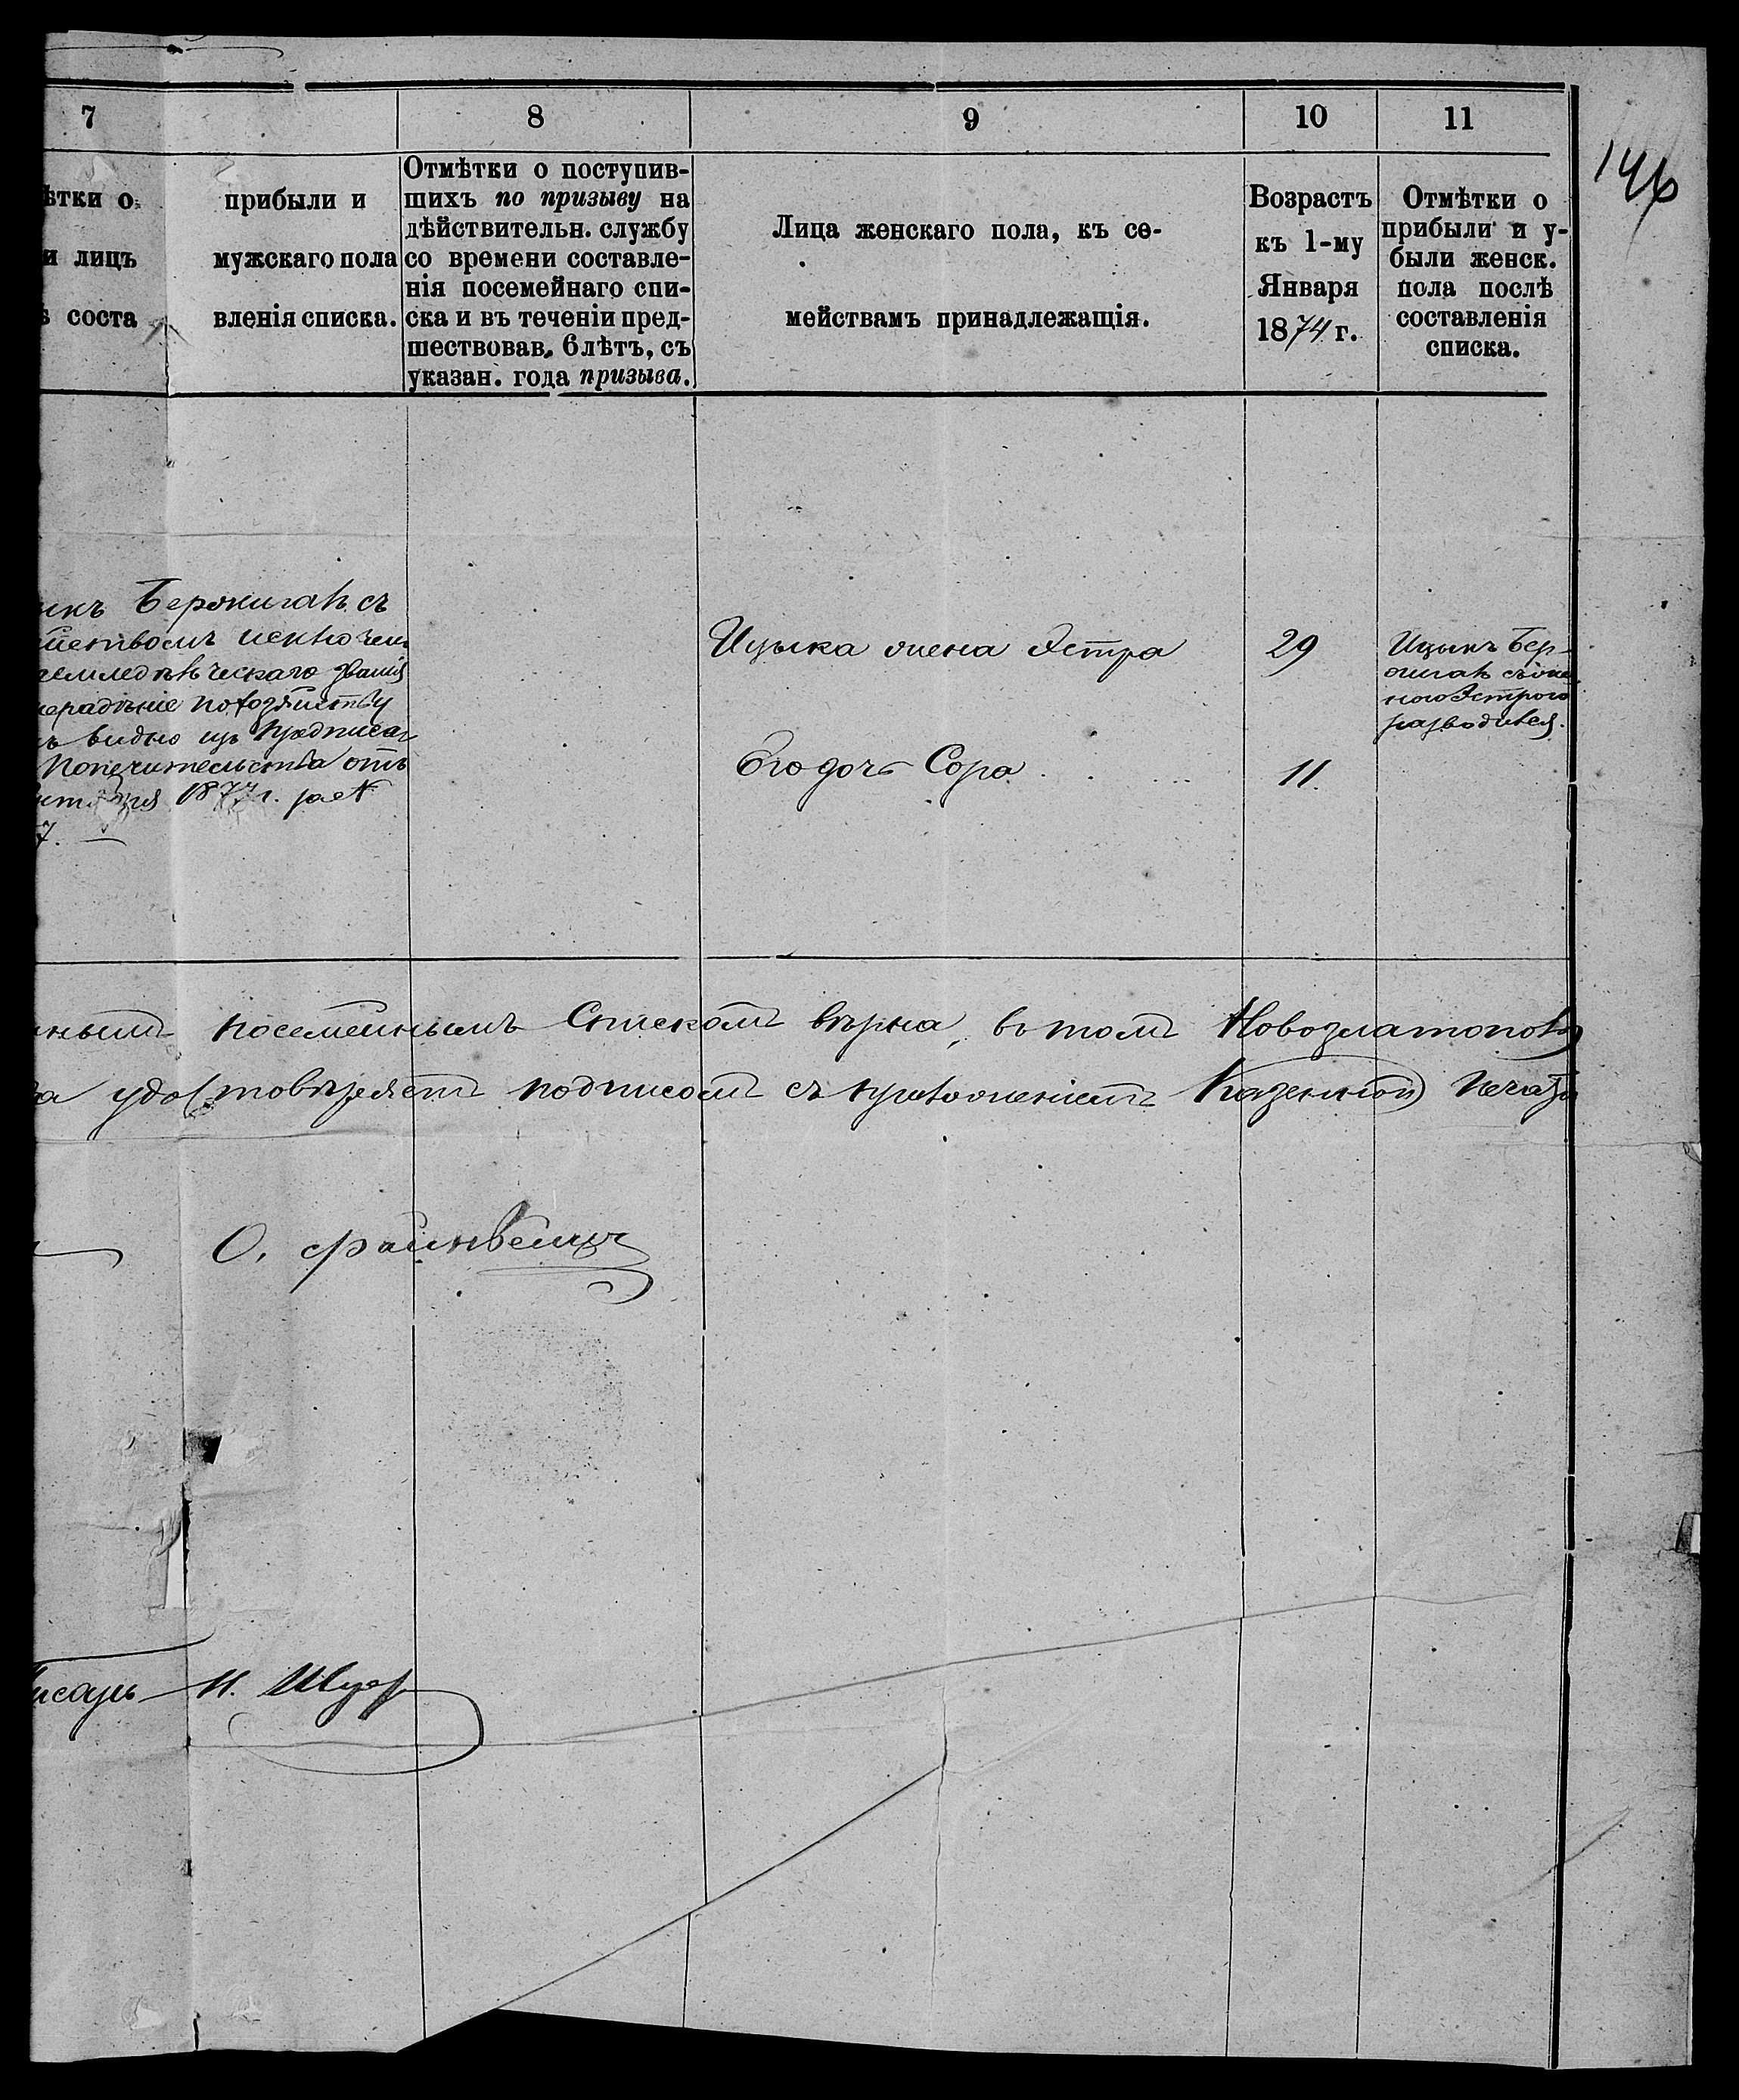 146
7 8 9 10 11
ѣтки о прибыли и
и лицъ мужскаго пола
ѣ соста вленія списка.
Отмѣтки о поступив-
шихъ по призыву на
дѣйствительн. службу
со времени составле-
нія посемейнаго спи-
ска и въ теченіи пред-
шествовав. 6 лѣтъ, съ
указан. года призыва.
Лица женскаго пола, къ се-
мействамъ принадлежащія.
Возрастъ
къ 1-му
Января
1874 г.
Отмѣтки о
прибыли и у-
были женск.
пола послѣ
составленія
списка.
икъ Бержиганъ съ
ействомъ исключен
земледѣльческаго званія
нерадѣніе по хозяйству
ъ видно изъ предписан
Попечительства отъ
1877 г. за №
7. —
Ицыка жена Эстра 29
Ицыкъ Бер-
жиганъ съ же
ною Эстрою
разводился.
Его дочь Сора 11.
ннымъ посемейнымъ Спискомъ вѣрна, въ томъ Новозлатополь
а удостовѣряетъ подписомъ съ приложеніемъ Казенной Печати
О. Файнвейнъ
исарь И. Шуеръ